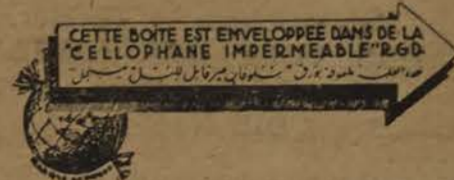 CETTE BOITE EST ENVELOPPEE DANS DE LA
"CELLOPHANE IMPERMEABLE" RGD.
هذه العلبة ملفوفة بورق "سلوفان غير قابل للبلل" مسجل